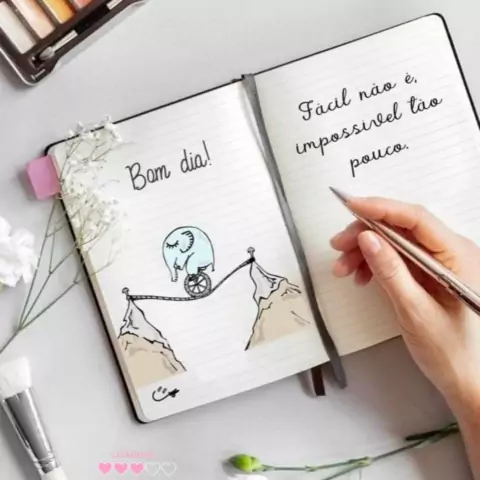 Bom dia!
Fácil não é,
impossível tão
pouco.